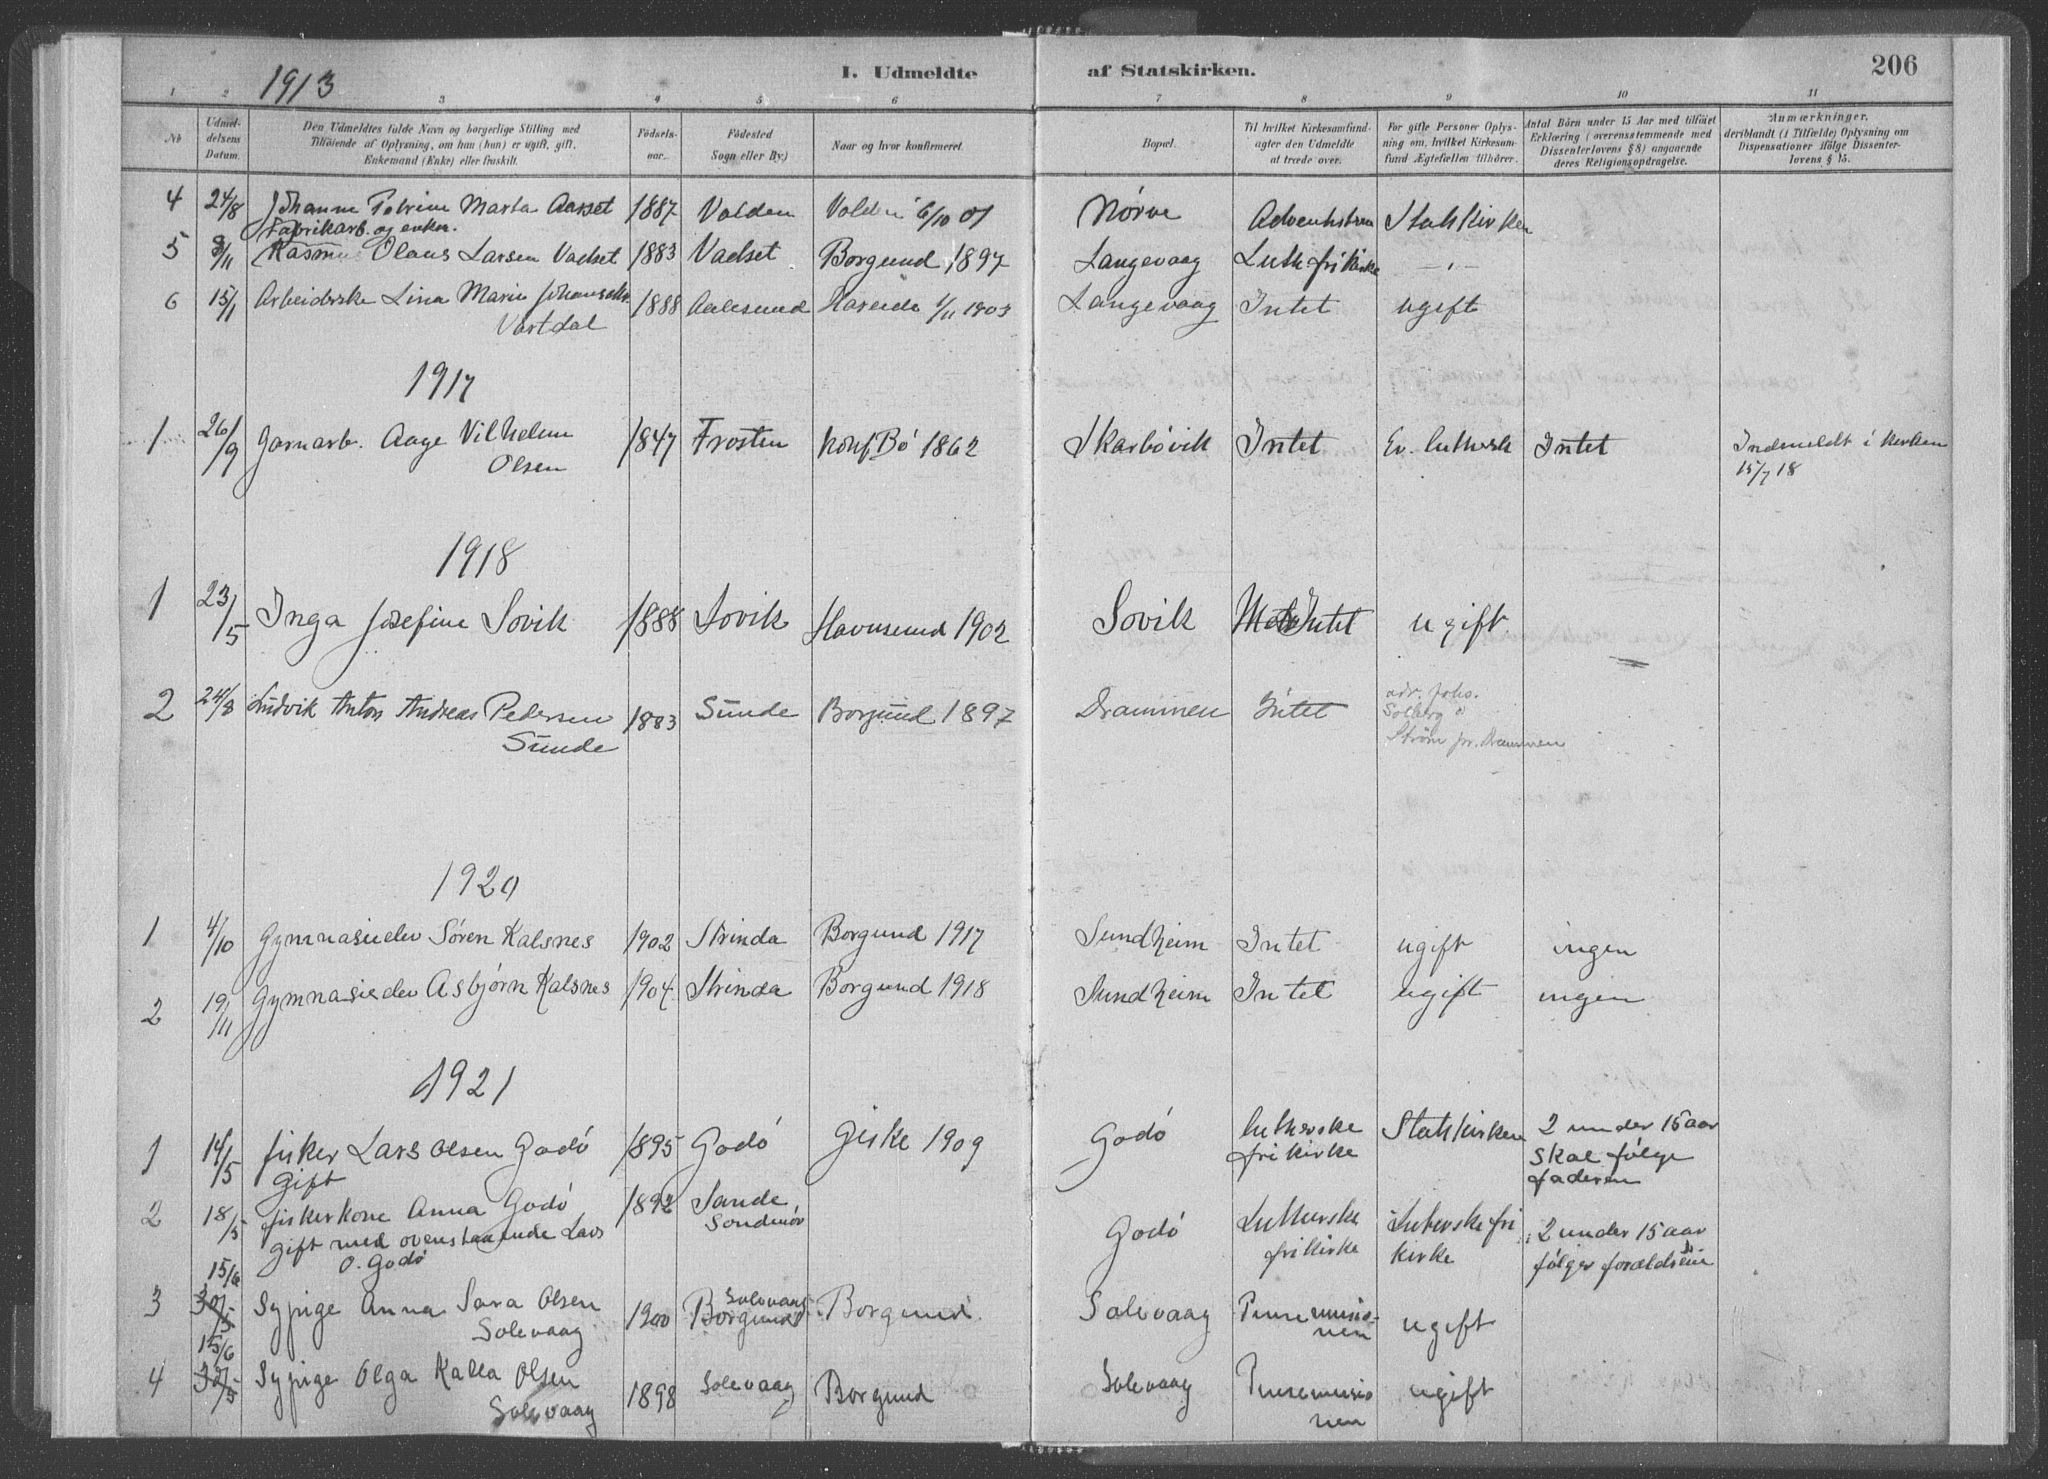 1913
I. Udmeldte af Statskirken.
206
1 2 3 4 5 6 7 8 9 10 11
No
Udmel-
delsens
Datum.
Den Udmeldtes fulde Navn og borgerlige Stilling med
Tilføiende af Oplysning, om han (hun) er ugift, gift,
Enkemand (Enke) eller fraskilt.
Fødsels-
aar.
Fødested
Sogn eller By.)
Naar og hvor konfirmeret.
Bopæl.
Til hvilket Kirkesamfund-
agter den Udmeldte
at træde over.
For gifte Personer Oplys-
ning om, hvilket Kirkesam-
fund Ægtefællen tilhører.
Antal Børn under 15 Aar med tilføiet
Erklæring (overensstemmende med
Dissenterlovens § 8) angaaende
deres Religionsopdragelse.
Anmærkninger,
deriblandt (i Tilfælde) Oplysning om
Dispensationer ifølge Dissenter-
lovens § 15.
4 24/8 Johanne Petrine Marta Aarset 1887 Volden Volden 6/10 01 Nørve Adventistern Statskirken
Fabrikarb. og enke.
5 9/11 Rasmus Olaus Larsen Vadset 1883 Vadset Borgund 1897 Langevaag Luth frikirke — " —
6 15/1 Arbeiderske Lina Marie Johansdtr 1888 Aalesund Hareide 1/11 1903 Langevaag Intet ugift
Vartdal
1917
1 26/9 Garnarb. Aage Vilhelm 1847 Frosten Konf Bó 1862 Skarbövik Intet Ev. luthersk Intet Indmeldt i kirken
Olsen 15/7 18
1918
1 23/5 Inga Josefine Sovik 1888 Sovik Havnsund 1902 Sovik Intet ugift
2 24/8 Ludvik Anton Andreas Pedersen 1883 Sunde Borgund 1897 Drammen Intet adr. Johs.
Sunde Solberg
Strøm pr. Drammen
1920
1 4/10 Gymnasieelev Sören Kalsnes 1902 Strinda Borgund 1917 Sundheim Intet ugift ingen
2 19/11 Gymnasieelev Asbjørn Kalsnes 1904 Strinda Borgund 1918 Sundheim Intet ugift ingen
1921
1 14/5 fisker Lars Olsen Godó 1895 Godó Giske 1909 Godó lutherske Statskirken 2 under 15 aar
gift frikirke skal følge
faderen
2 18/5 fiskerkone Anna Godó 1892 Sande Godó Lutherske Luterske fri 2 under 15 aar
gift med ovenstaaende Lars Sondmör frikirke kirke følger forældrene
O. Godó
15/6
3 30/5 Sypige Anna Sara Olsen 1900 Borgund Solevaag Borgund Solevaag Pinsemisio- ugift
Solevaag nen
15/6
4 30/5 Sypige Olga Kalla Olsen 1898 Solevaag Borgund Solevaag Pinsemisio ugift
Solevaag nen